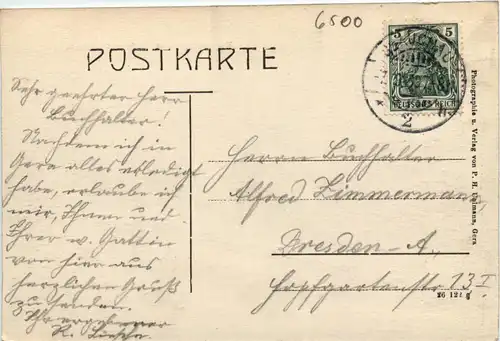 6500
POSTKARTE
5 5
DEUTSCHES REICH
2
Sehr geehrter Herr
Buchhalter!
Nachdem ich in
Gera alles erledigt
habe, erlaube ich
mir, Ihnen und
Ihrer w. Gattin
von hier aus
herzlichen Gruß
zu senden.
Ihr ergebener
R.
Herrn Buchhalter
Alfred Zimmermann,
Dresden-A.,
Hopfgartenstr 13 I
Photographie u. Verlag von P. H. Gera
26 122